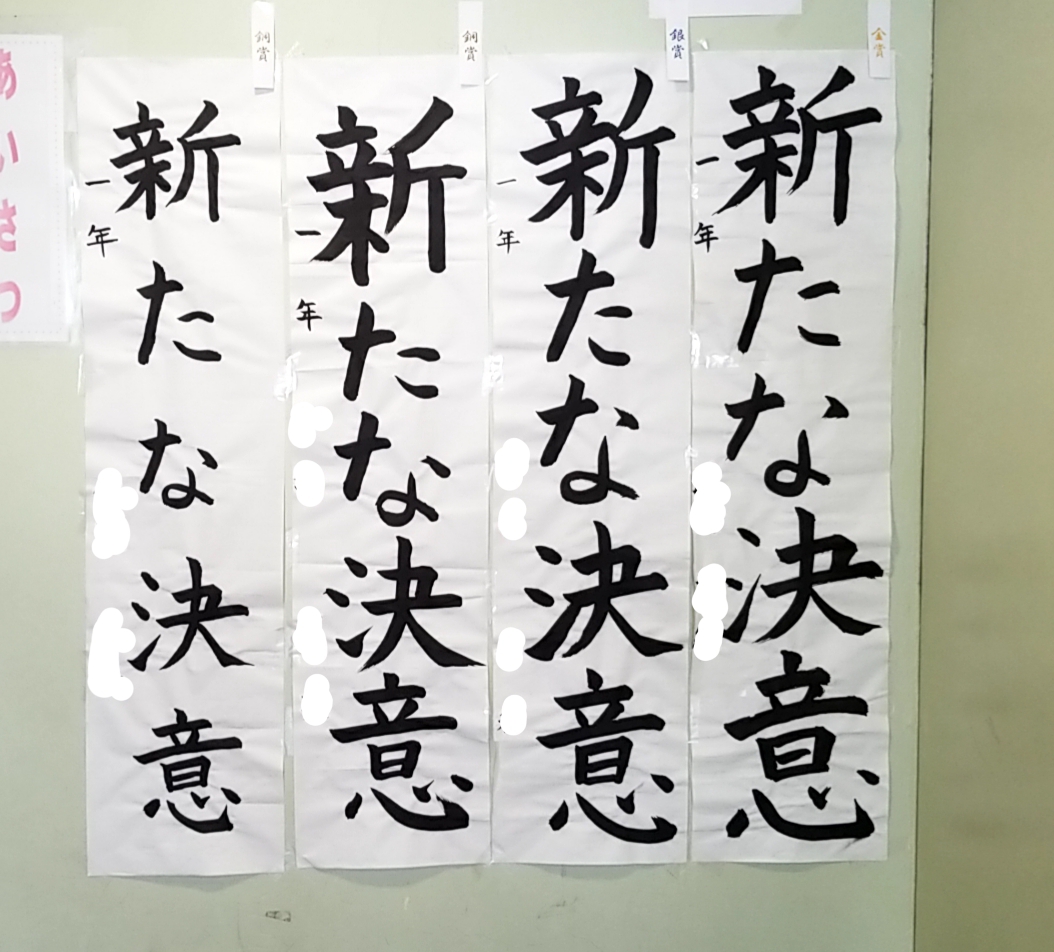 金賞
新たな決意
一年
銀賞
新たな決意
一年
銅賞
新たな決意
一年
銅賞
新たな決意
一年
あいさつ